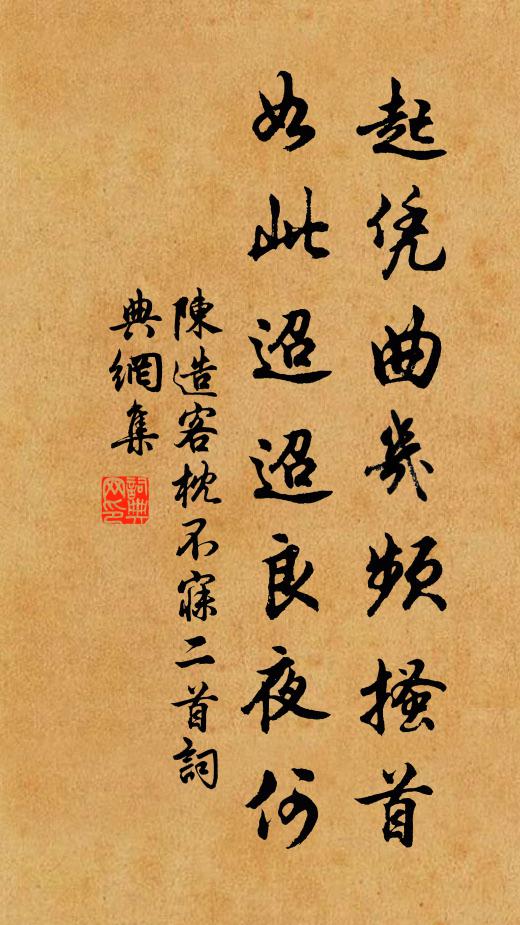 起凭曲几频搔首
如此迢迢良夜何
陳造客枕不寐二首詞
典網集
詞典
网印